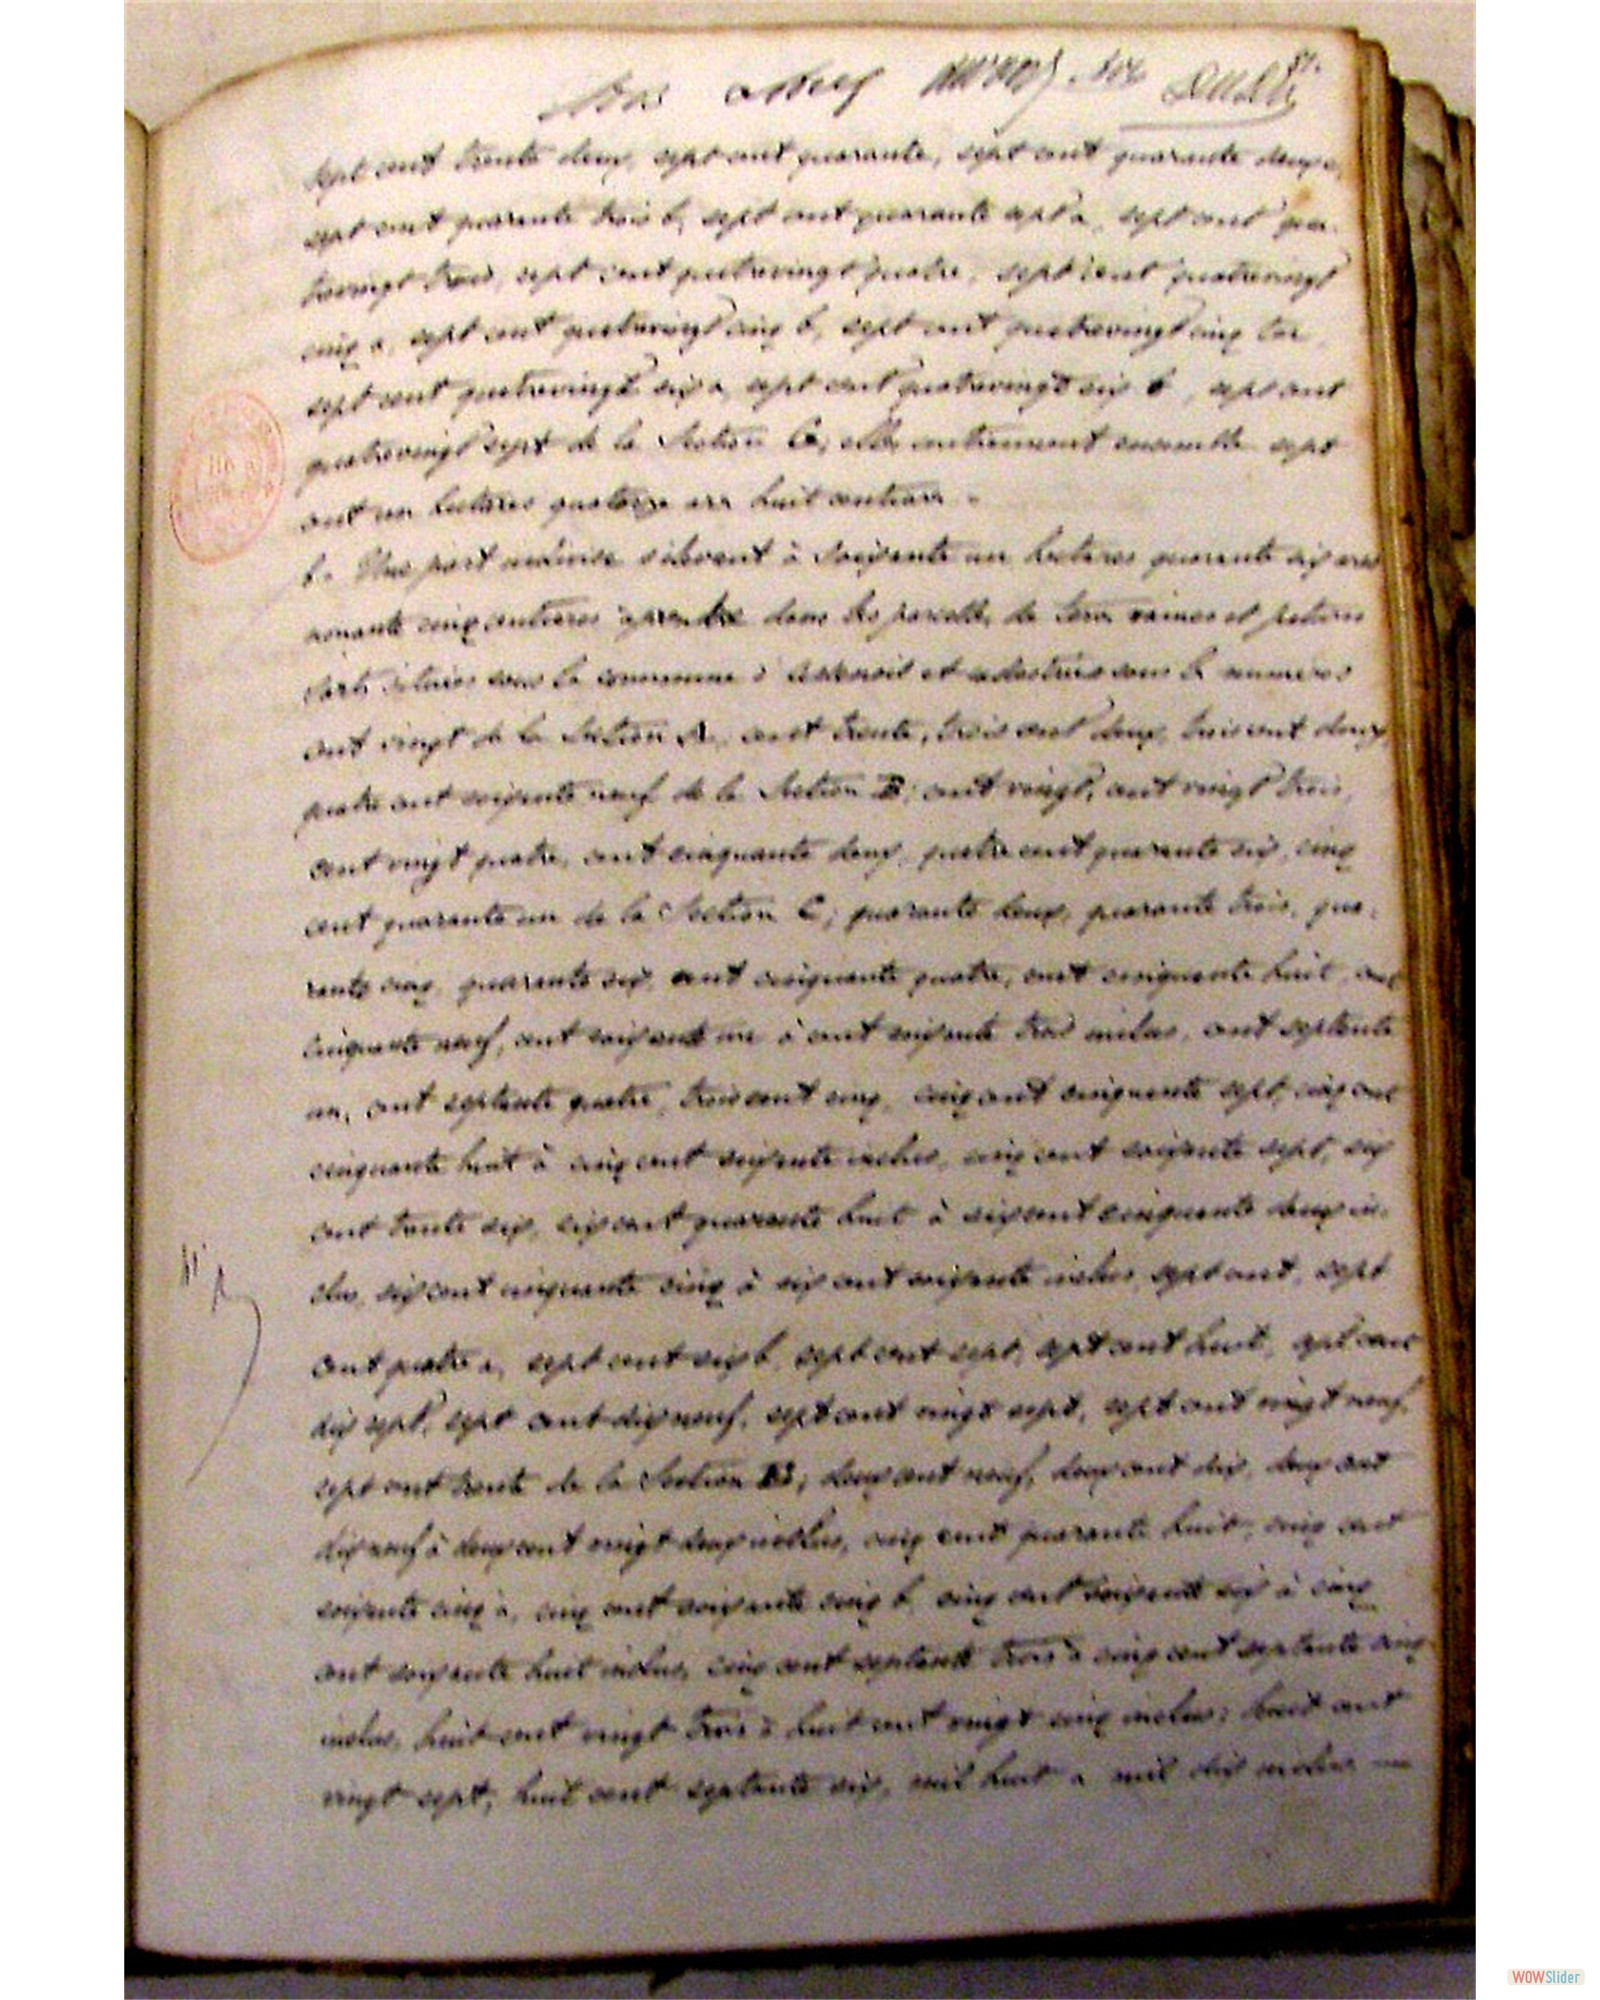 sept cent trente deux, sept cent quarante, sept cent quarante deux
sept cent quarante trois b, sept cent quarante sept a, sept cent qua-
trevingt trois, sept cent quatrevingt quatre, sept cent quatrevingt
cinq a, sept cent quatrevingt cinq b, sept cent quatrevingt cinq ter
sept cent quatrevingt six a, sept cent quatrevingt six b, sept cent
quatrevingt sept de la Section C, elles contiennent ensemble sept
cent un hectares quatorze ares huit centiares
b. Une part indivise s'élevant à soixante un hectares quarante six ares
nonante cinq centiares à prendre dans les parcelles de terres vaines et
situées sous la commune d' et cadastrées sous les numéros
cent vingt de la Section A, cent trente, trois cent deux, trois cent douze
quatre cent soixante neuf de la Section B; cent vingt, cent vingt trois,
cent vingt quatre, cent cinquante deux, quatre cent quarante six, cinq
cent quarante un de la Section C; quarante deux, quarante trois, qua-
rante cinq, quarante six, cent cinquante quatre, cent cinquante huit, cent
cinquante neuf, cent soixante un à cent soixante trois inclus, cent septante
un, cent septante quatre, trois cent cinq, cinq cent cinquante sept, cinq cent
cinquante huit à cinq cent soixante inclus, cinq cent soixante sept, six
cent trente six, six cent quarante huit à six cent cinquante deux in-
clus, six cent cinquante cinq à six cent soixante inclus, sept cent, sept
cent quatre a, sept cent six b, sept cent sept, sept cent huit, sept cent
dix sept, sept cent dix neuf, sept cent vingt sept, sept cent vingt neuf,
sept cent trente de la Section; deux cent neuf, deux cent dix, deux cent
dix neuf à deux cent vingt deux inclus, cinq cent quarante huit, cinq cent
soixante cinq a, cinq cent soixante cinq b, cinq cent soixante six à cinq
cent soixante huit inclus, cinq cent septante trois à cinq cent septante cinq
inclus, huit cent vingt trois à huit cent vingt cinq inclus; huit cent
vingt sept, huit cent septante six, mil huit à mil dix inclus —
WOWSlider